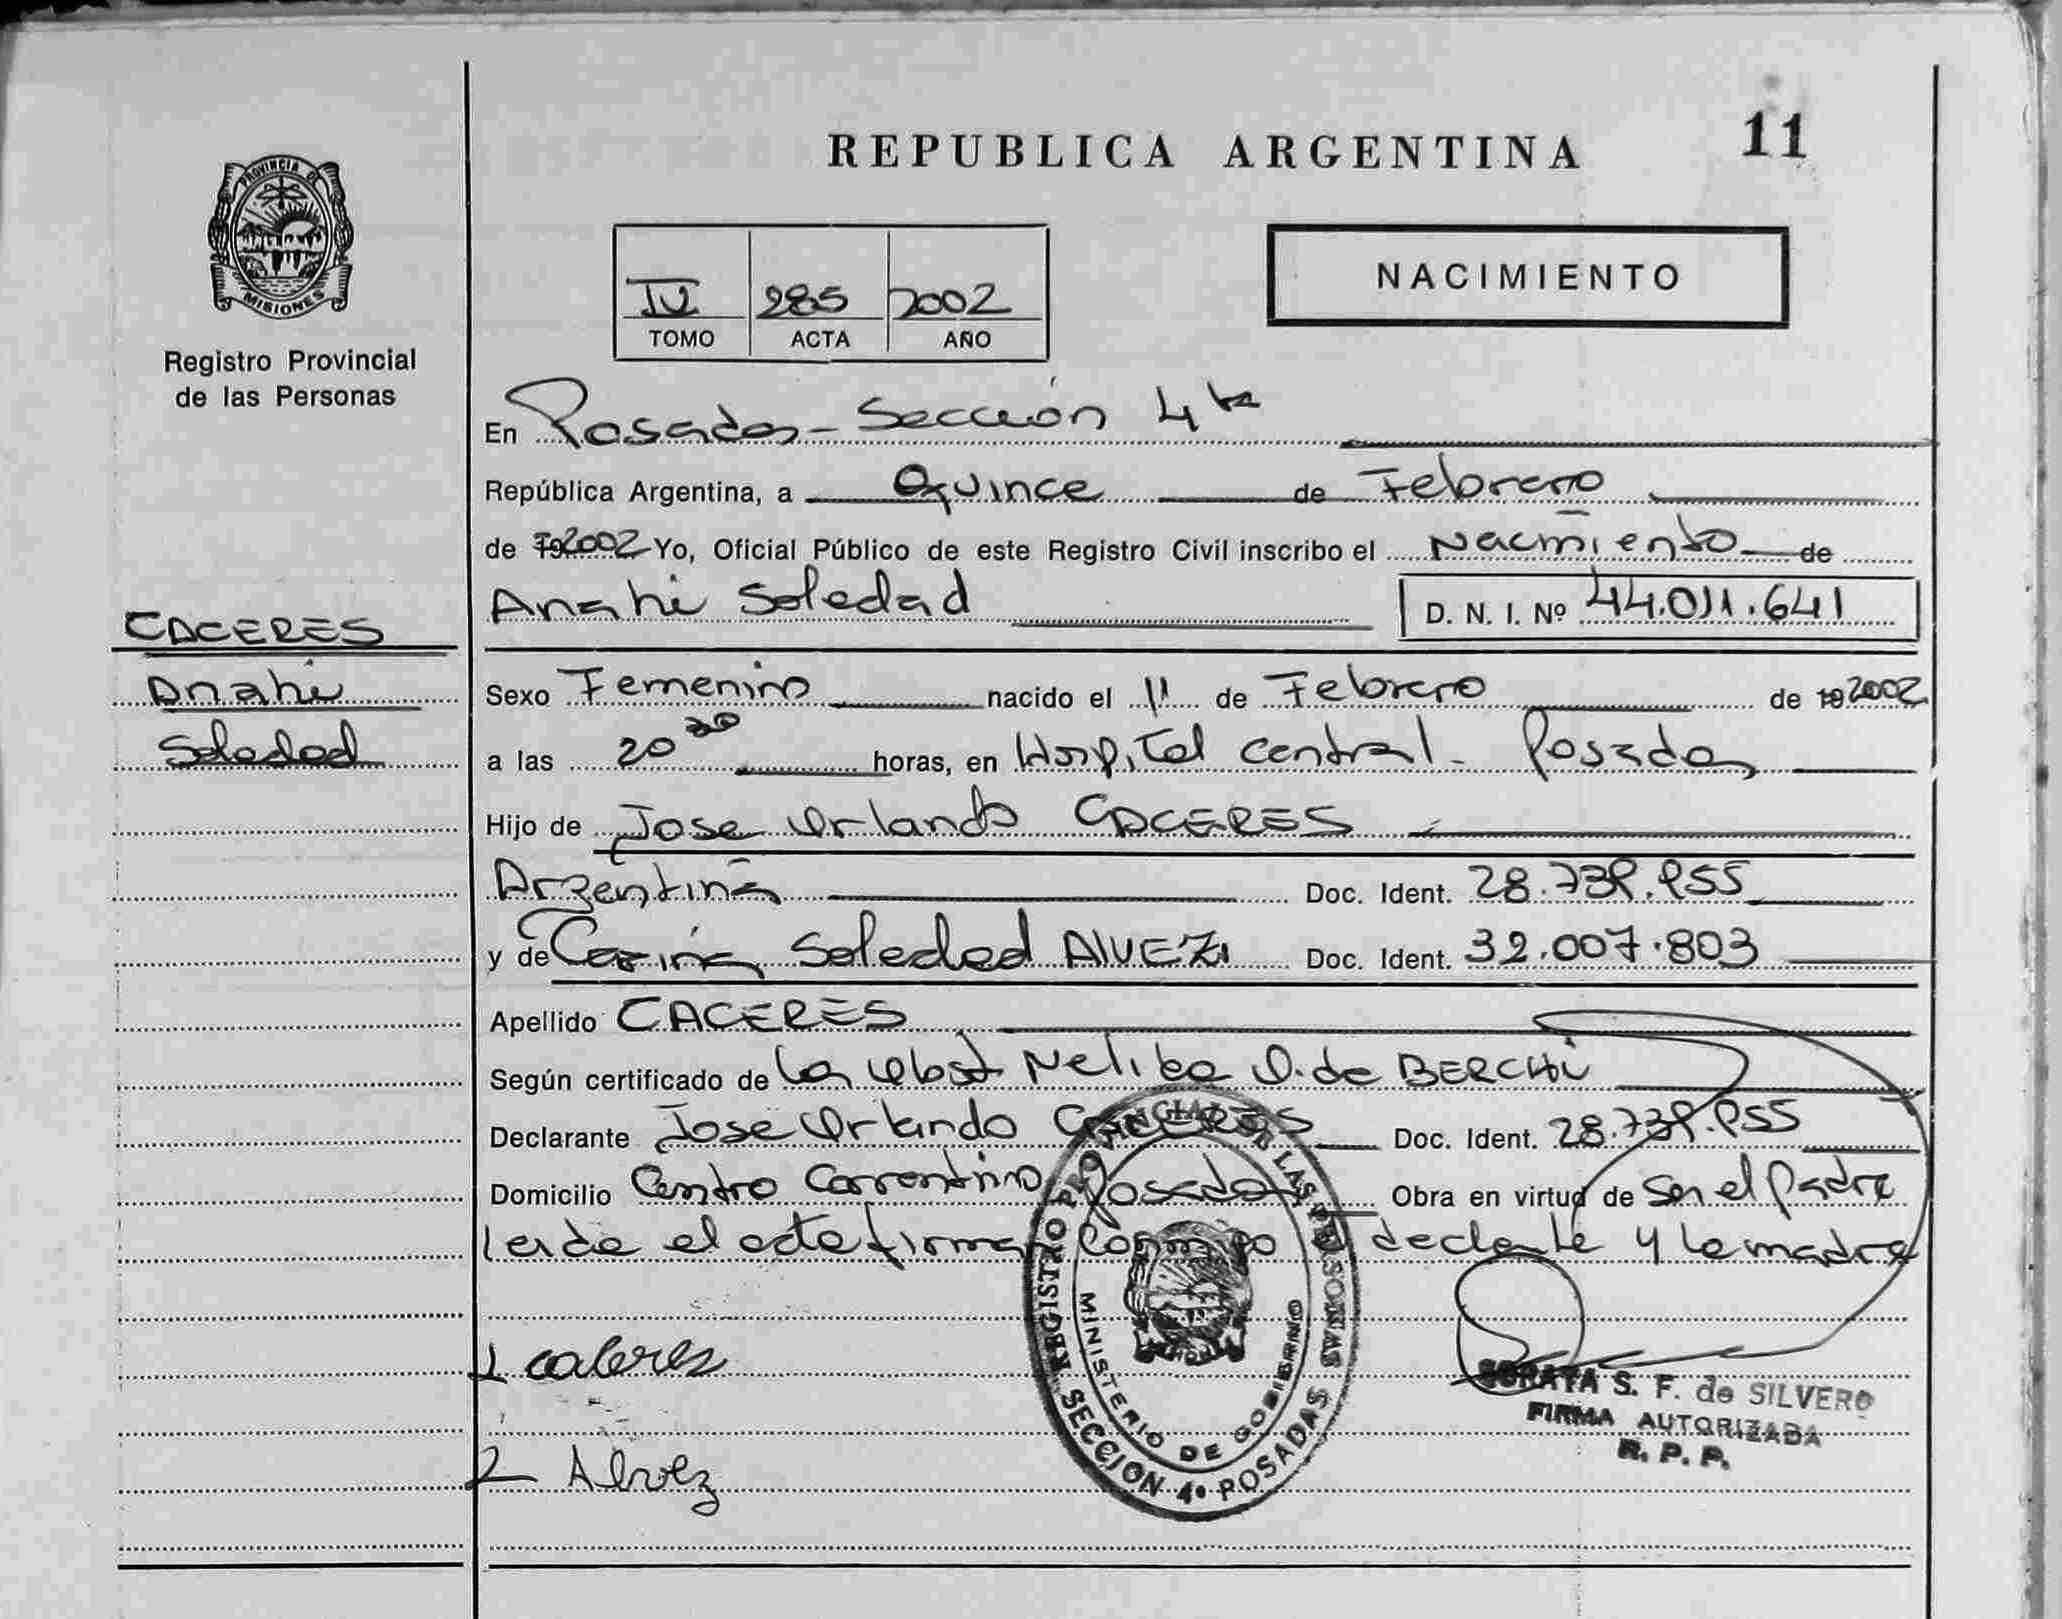 REPUBLICA ARGENTINA
11
PROVINCIA DE
MISIONES
Registro Provincial
de las Personas
NACIMIENTO
IV 285 2002
TOMO ACTA AÑO
En Posadas - Sección 4ta
República Argentina, a Quince de Febrero
de 2002 Yo, Oficial Público de este Registro Civil inscribo el Nacimiento de
Anahi Soledad D. N. I. Nº 44.011.641
CACERES
Anahi
Soledad
Sexo Femenino nacido el 11 de Febrero de 2002
a las 20 horas, en Hospital Central - Posadas
Hijo de Jose Orlando CACERES
Argentina Doc. Ident. 28.739.955
y de Carina Soledad ALVEZ Doc. Ident. 32.007.803
Apellido CACERES
Según certificado de la Obst Nelida O. de
Declarante Jose Orlando CACERES Doc. Ident. 28.739.955
Domicilio Centro Correntino Posadas Obra en virtud de ser el padre
leida el acta firman conmigo declante y la madre
1 caceres
2 Alvez
REGISTRO PROVINCIAL DE LAS PERSONAS
MINISTERIO DE GOBIERNO
SECCION 4ª POSADAS
SORAYA S. F. de SILVERO
FIRMA AUTORIZADA
R. P. P.